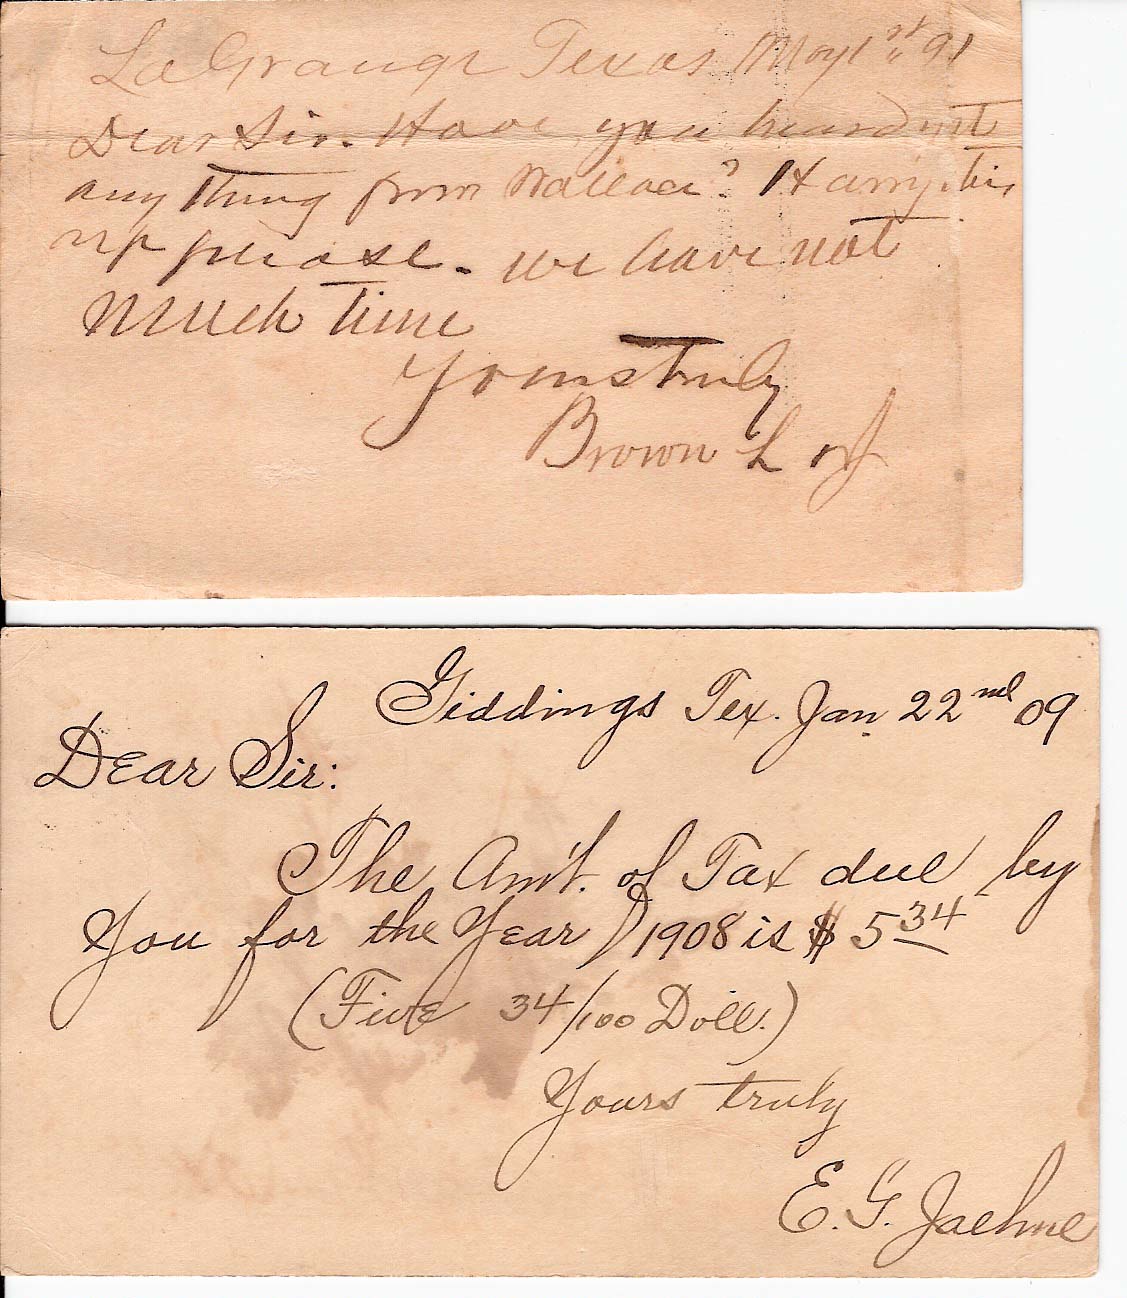 LaGrange Texas May 1st 91
Dear Sir. Have you heard
any thing from Wallace?
up please. we have not
much time
Yours truly
Brown L
Giddings Tex. Jan 22nd 09
Dear Sir:
The Am't. of Tax due by
You for the Year 1908 is $ 5 34
(Five 34/100 Doll.)
Yours truly
E. G. Jaehne